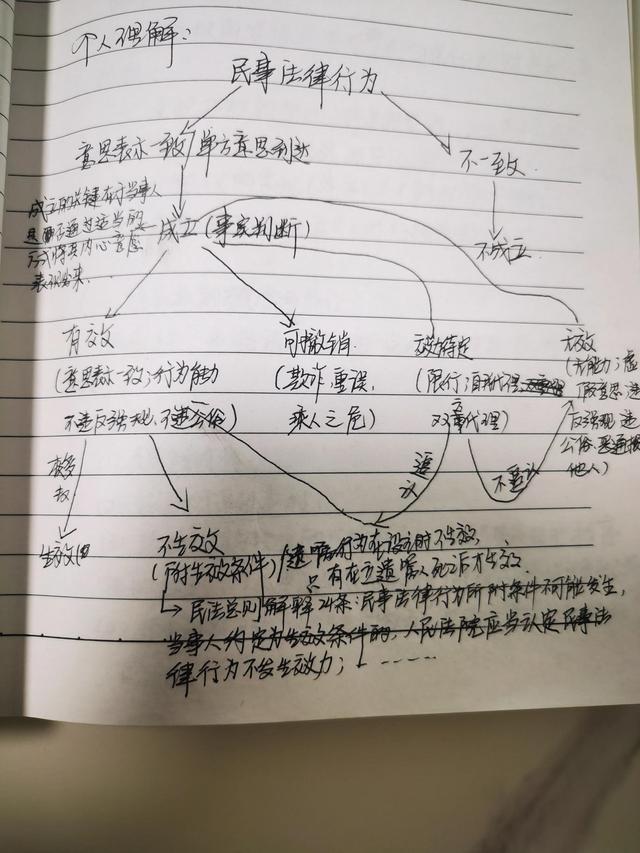 个人理解：
民事法律行为
意思表示一致/单方意思到达
不一致
成立的关键在于当事人
是否通过适当的
方式将其内心意愿
表现出来.
成立(事实判断)
不成立
有效
可撤销
效力待定
无效
(意思表示一致;行为能力
(欺诈,重误,
(限行;自己代理
(无能力;虚
假意思,违
不违反强规,不违公俗)
乘人之危)
双方代理)
反强规,违
公俗,恶通损
他人)
追认
不追认
生效
不生效
(附生效条件)/遗嘱行为在设立时不生效,
只有在立遗嘱人死后才生效.
民法总则解释24条:民事法律行为所附条件不可能发生,
当事人约定为生效条件的,人民法院应当认定民事法
律行为不发生效力; ……